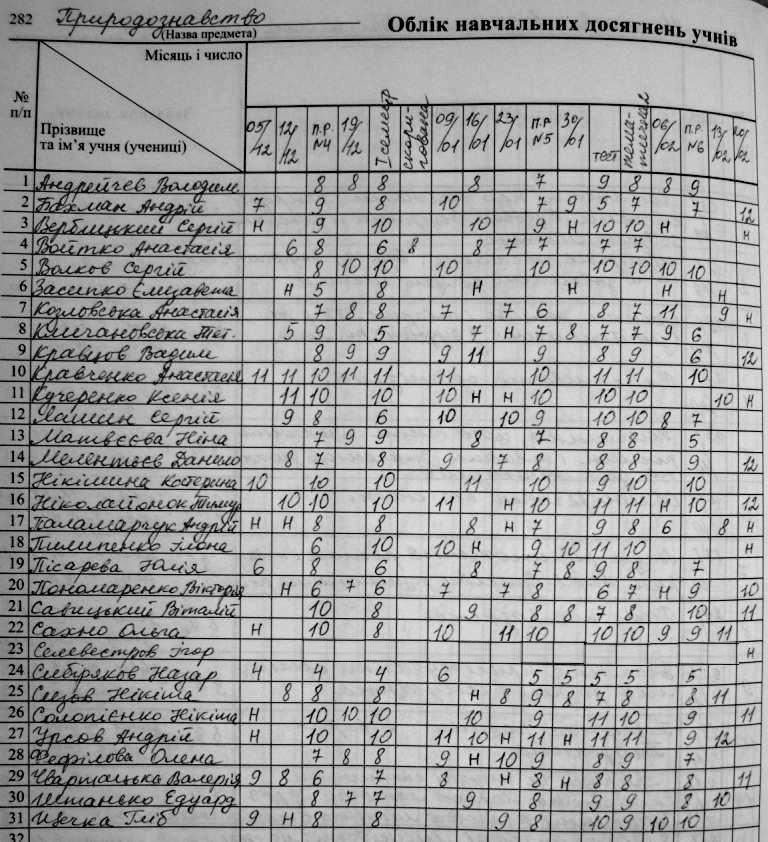 282 Природознавство
(Назва предмета)
Облік навчальних досягнень учнів
Місяць і число
№ п/п
Прізвище та ім'я учня (учениці)
05/12 12/12 П.Р. №4 19/12 І семестр скоригована 09/01 16/01 23/01 П.Р. №5 30/01 тест тематична 06/02 П.Р. №6 13/02 20/02
1 Андрейчев Володим. 8 8 8 8 7 9 8 8 9
2 Бохман Андрій 7 9 8 10 7 9 5 7 7 12
3 Вербицький Сергій Н 9 10 10 9 Н 10 10 Н Н
4 Войтко Анастасія 6 8 6 8 8 7 7 7 7
5 Волков Сергій 8 10 10 10 10 10 10 10 10
6 Засипко Єлизавета Н 5 8 Н Н Н Н
7 Козловська Анастасія 7 8 8 7 7 6 8 7 11 9 Н
8 Климановська Тет. 5 9 5 7 Н 7 8 7 7 9 6
9 Кравцов Вадим 8 9 9 9 11 9 8 9 6 12
10 Кравченко Анастасія 11 11 10 11 11 11 10 11 11 10
11 Кучеренко Ксенія 11 10 10 10 Н Н 10 10 10 10 Н
12 Лашин Сергій 9 8 6 10 10 9 10 10 8 7
13 Матвєєва Ніна 7 9 9 8 7 8 8 5
14 Мелентьєв Данило 8 7 8 9 7 8 8 8 9 12
15 Нікішина Катерина 10 10 10 11 10 9 10 10
16 Ніколайонок Тимур 10 10 10 11 Н 10 11 11 Н 10 12
17 Паламарчук Андрій Н Н 8 8 8 Н 7 9 8 6 8 Н
18 Пилипенко Ілона 6 10 10 Н 9 10 11 10 Н
19 Пісарєва Юлія 6 8 6 8 7 8 9 8 7
20 Пономаренко Вікторія Н 6 7 6 7 7 8 6 7 Н 9 10
21 Савицький Віталій 10 8 9 8 8 7 8 10 11
22 Сахно Ольга Н 10 8 10 11 10 10 10 9 9 11
23 Селевестров Ігор Н
24 Сибіряков Назар 4 4 4 6 5 5 5 5 5
25 Сизов Нікіта 8 8 8 Н 8 9 8 7 8 8 11
26 Солопієнко Нікіта Н 10 10 10 10 9 11 10 9 11
27 Урсов Андрій Н 10 10 11 10 Н 11 Н 11 11 9 12
28 Фефілова Олена 7 8 8 9 Н 10 9 8 9 7
29 Чвартацька Валерія 9 8 6 7 8 Н 8 Н 8 8 8 11
30 Штанько Едуард 8 7 7 9 8 9 9 8 10
31 Щечка Гліб 9 Н 8 8 9 8 10 9 10 10
32